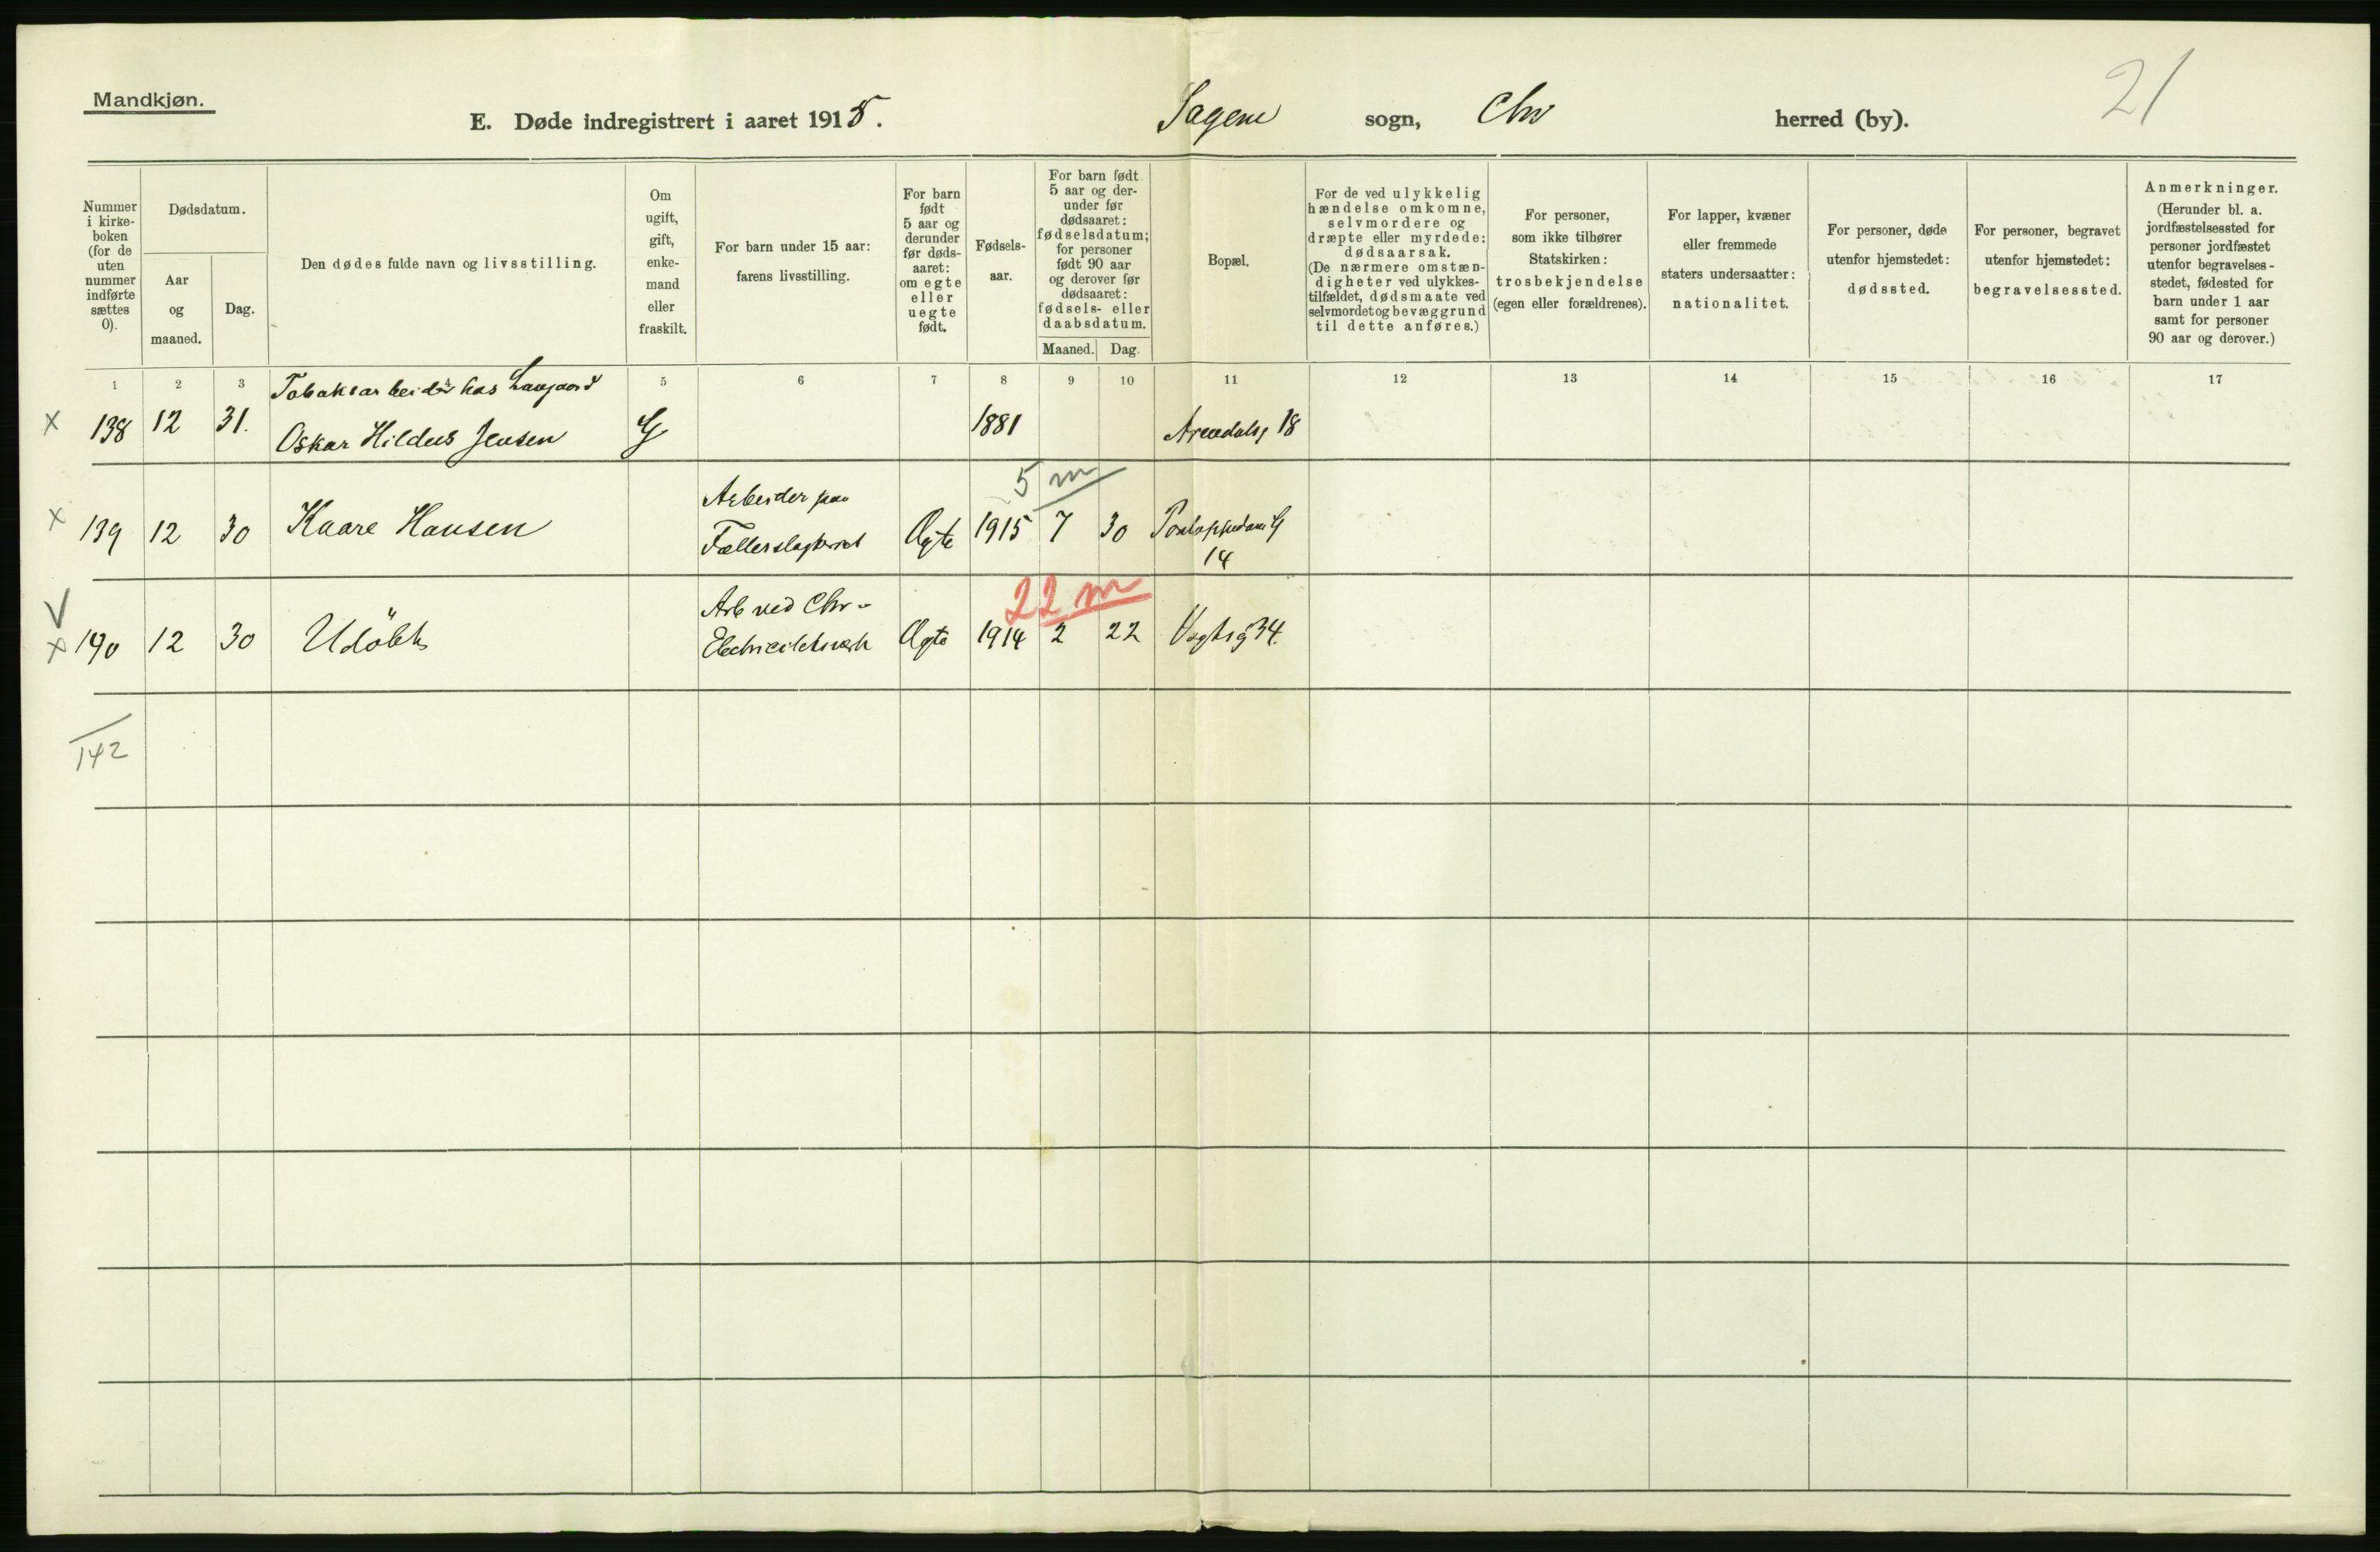 Mandkjøn.
E. Døde indregistrert i aaret 1915.
Sagene sogn, Chr herred (by).
21
Nummer i kirke-boken (for de uten nummer indførte sættes 0).
Dødsdatum.
Aar og maaned.
Dag.
Den dødes fulde navn og livsstilling.
Om ugift, gift, enke-mand eller fraskilt.
For barn under 15 aar: farens livsstilling.
For barn født 5 aar og derunder før døds-aaret: om egte eller uegte født.
Fødsels-aar.
For barn født 5 aar og der-under før dødsaaret: fødselsdatum; for personer født 90 aar og derover før dødsaaret: fødsels- eller daabsdatum.
Maaned. Dag.
Bopæl.
For de ved ulykkelig hændelse omkomne, selvmordere og dræpte eller myrdede: dødsaarsak. (De nærmere omstæn-digheter ved ulykkes-tilfældet, dødsmaate ved selvmordet og bevæggrund til dette anføres.)
For personer, som ikke tilhører Statskirken: trosbekjendelse (egen eller forældrenes).
For lapper, kvæner eller fremmede staters undersaatter: nationalitet.
For personer, døde utenfor hjemstedet: dødssted.
For personer, begravet utenfor hjemstedet: begravelsessted.
Anmerkninger. (Herunder bl. a. jordfæstelsessted for personer jordfæstet utenfor begravelses-stedet, fødested for barn under 1 aar samt for personer 90 aar og derover.)
1 2 3 4 5 6 7 8 9 10 11 12 13 14 15 16 17
Tobaksarbeider hos Langaard
x 138 12 31. Oskar Hildus Jensen G 1881 Arendalsg 18
5 m
Arbeider paa
x 139 12 30 Kaare Hansen Fællesslagteriet Ægte 1915 7 30
14
22 m
V
Arb ved Chr.
x 140 12 30 Udöbt Electricitetsverk Ægte 1914 2 22 Vogtsg 34.
142